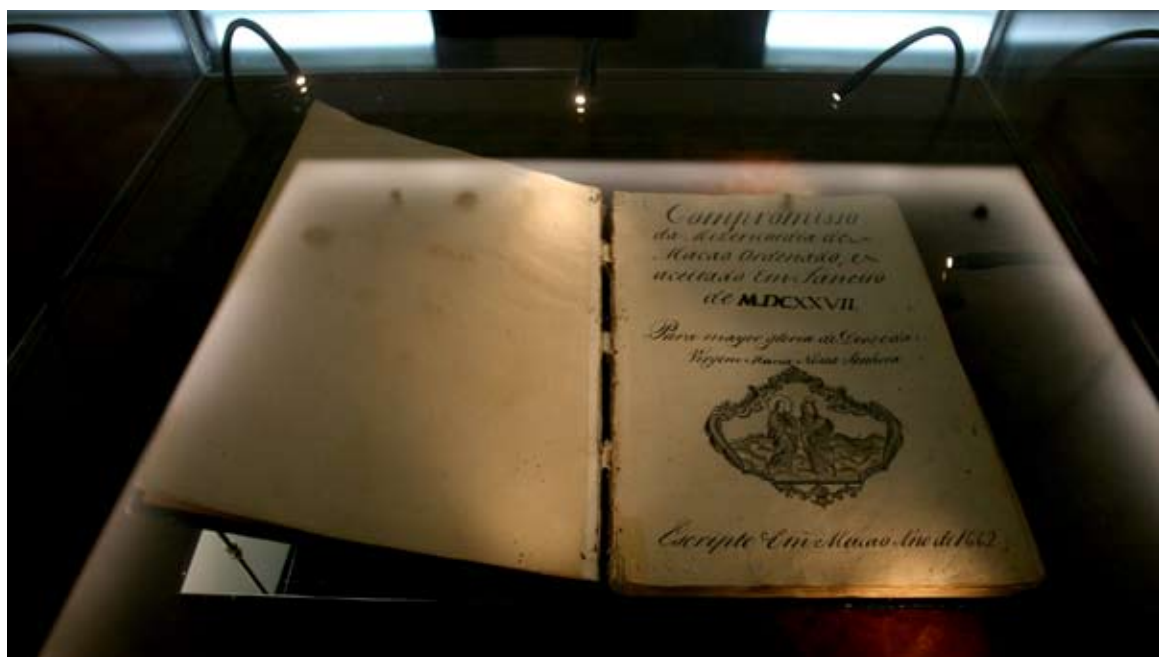 Compromisso
da Mizericordia de
Macao Ordenado, e
aceitado Em Janeiro
de M.DCXXVII.
Para mayor gloria de Deos e da
Virgem Maria Nossa Senhora
Escripto Em Macao Ano de 1662